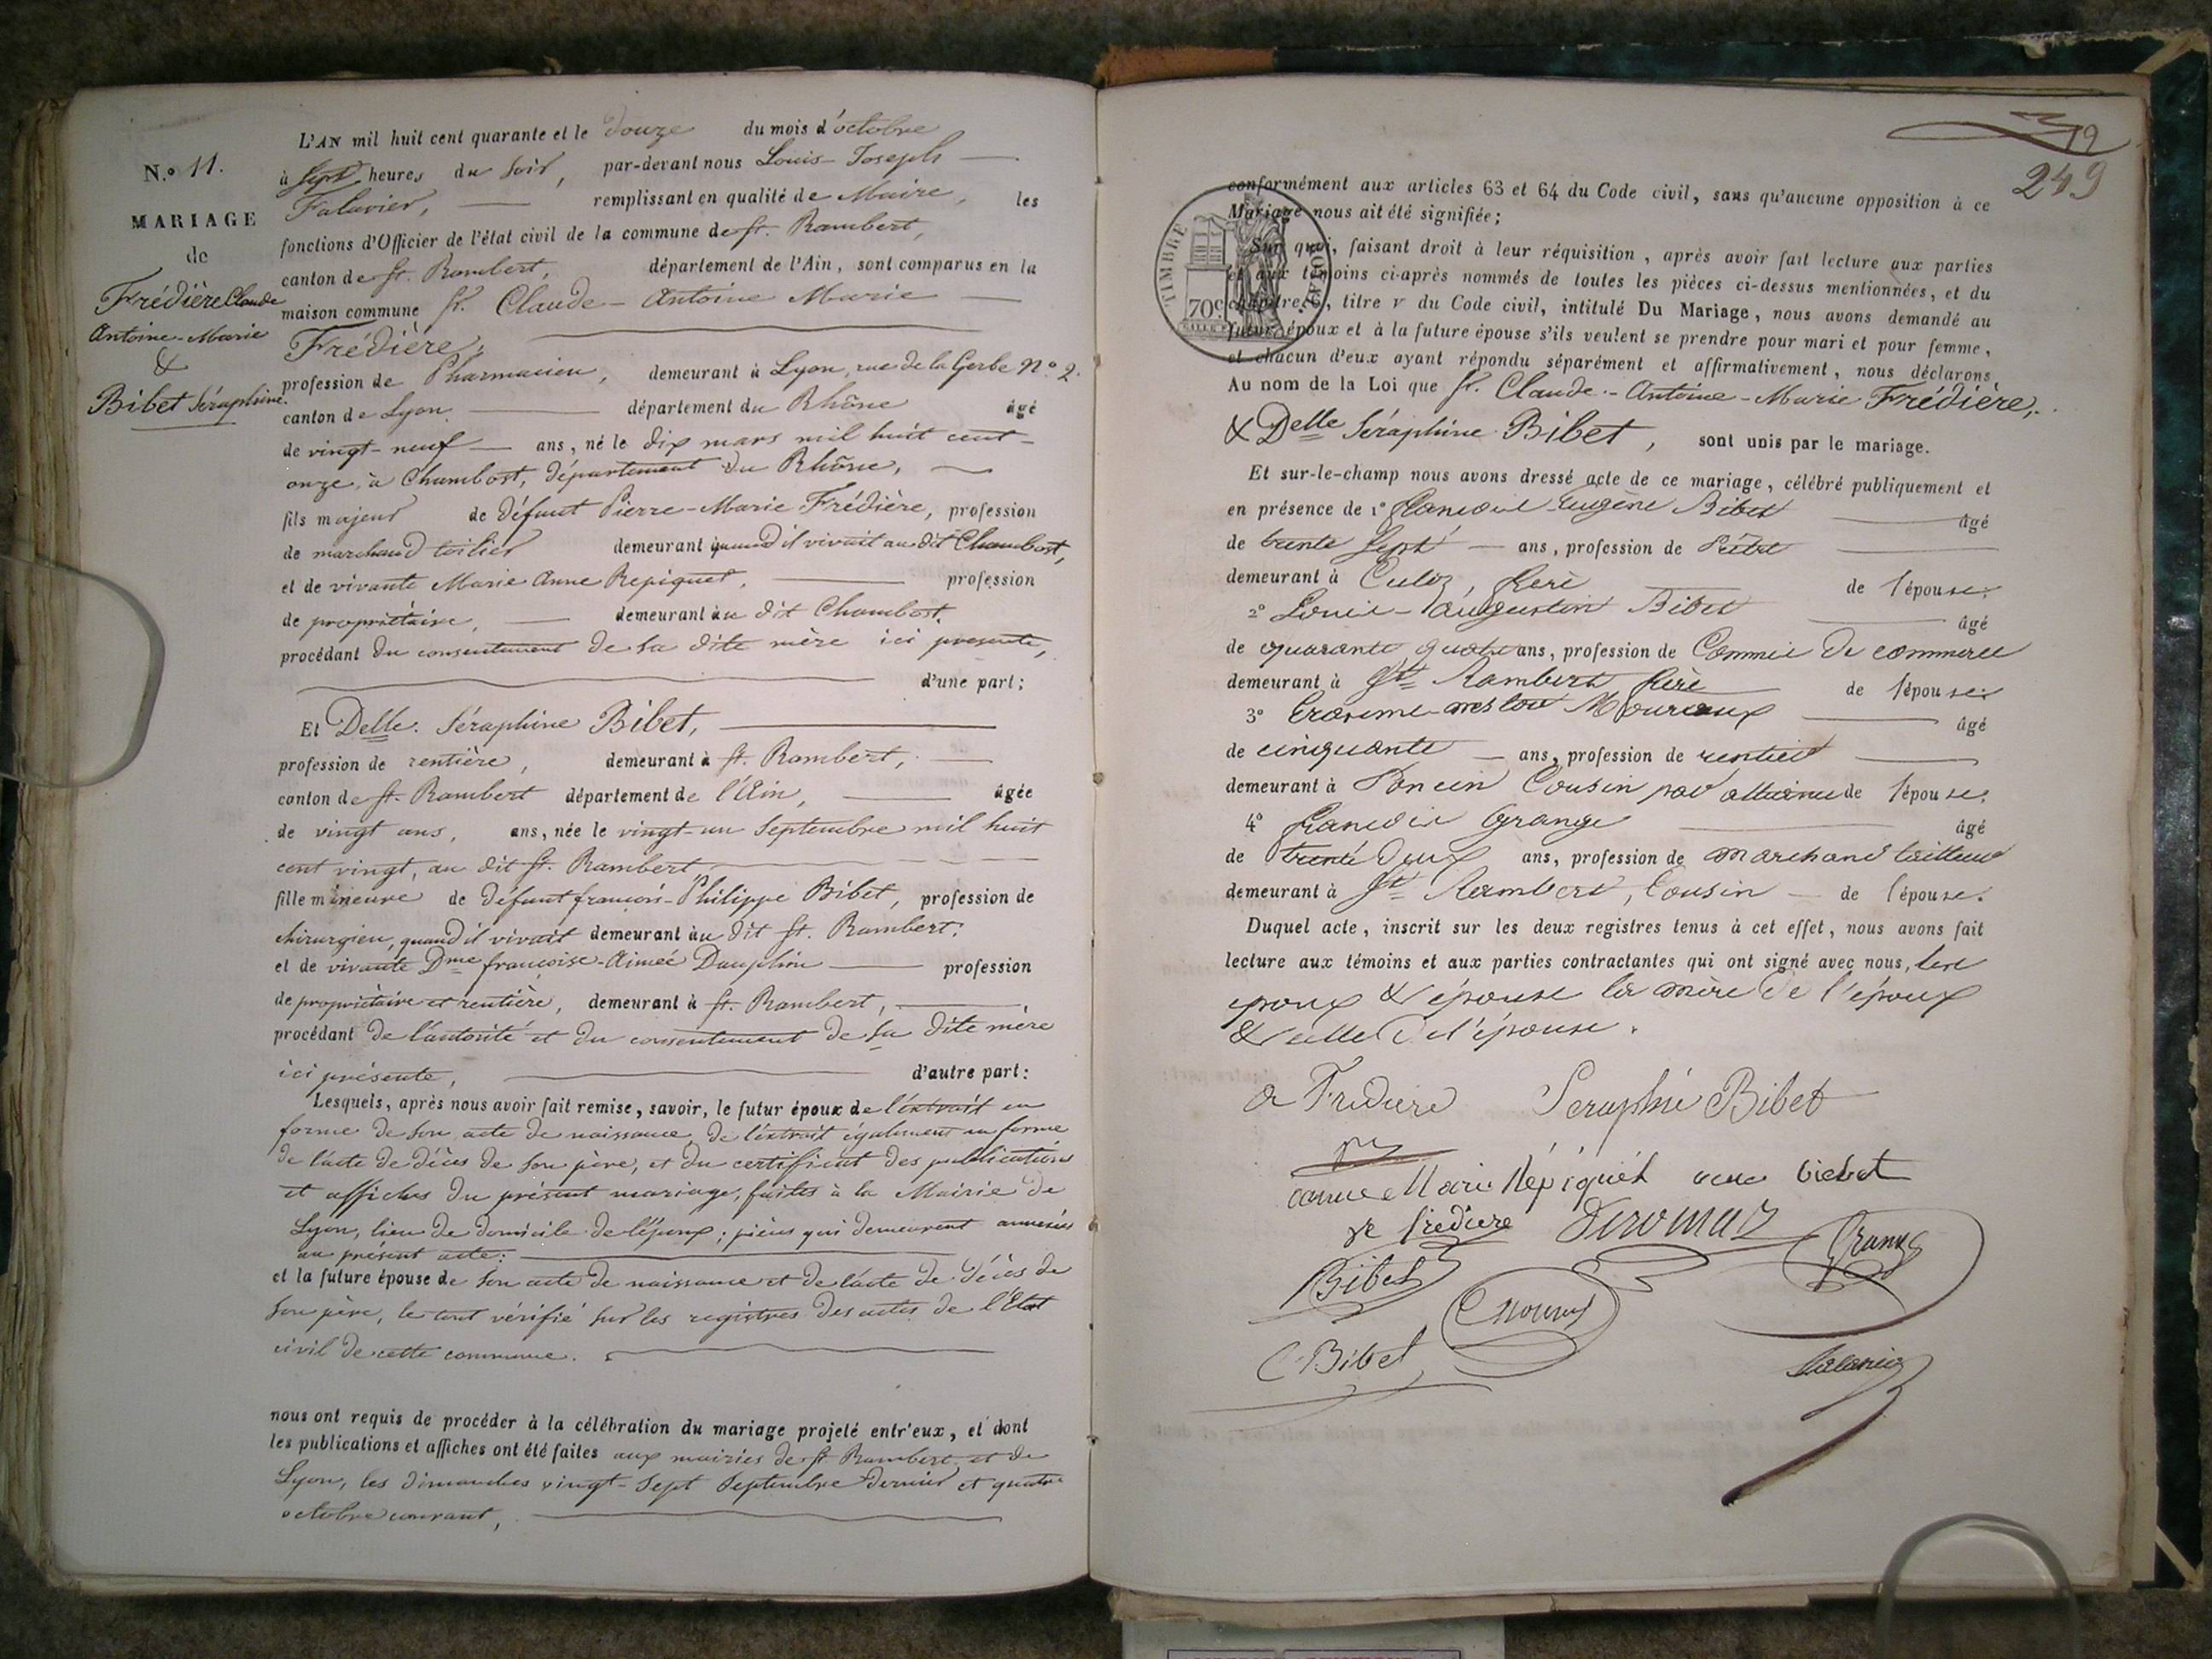 N.o 11.
MARIAGE
de
Frédière Claude
Antoine-Marie
&
Bibet Séraphine.
L'AN mil huit cent quarante et le douze du mois d'octobre
à Sept heures du soir, par-devant nous Louis-Joseph
Falavier, remplissant en qualité de Maire, les
fonctions d'Officier de l'état civil de la commune de St. Rambert,
canton de St. Rambert, département de l'Ain, sont comparus en la
maison commune Sr. Claude-Antoine Marie
Frédière,
profession de Pharmacien, demeurant à Lyon, rue de la Gerbe N.o 2.
canton de Lyon département du Rhône âgé
de vingt-neuf ans, né le dix mars mil huit cent-
onze, à Chambost, département du Rhône,
fils majeur de défunt Pierre-Marie Frédière, profession
de marchand toilier demeurant quand il vivait au dit Chambost,
et de vivante Marie Anne Repiquet, profession
de propriétaire, demeurant au dit Chambost,
procédant du consentement de sa dite mère ici presente,
d'une part;
Et Delle. Séraphine Bibet,
profession de rentière, demeurant à St. Rambert,
canton de St. Rambert département de l'Ain, âgée
de vingt ans, ans, née le vingt-un Septembre mil huit
cent vingt, au dit St. Rambert,
fille mineure de défunt françois-Philippe Bibet, profession de
chirurgien, quand il vivait demeurant au dit St. Rambert;
et de vivante Dme françoise-Aimée Dauphin profession
de propriétaire et rentière, demeurant à St. Rambert,
procédant de l'autorité et du consentement de sa dite mère
ici présente, d'autre part:
Lesquels, après nous avoir fait remise, savoir, le futur époux de l'extrait en
forme de son acte de naissance, de l'extrait également en forme
de l'acte de décès de son père, et du certificat des publications
et affiches du présent mariage, faites à la Mairie de
Lyon, lieu de domicile de l'époux; pièces qui demeurent annexées
au présent acte:
et la future épouse de son acte de naissance et de l'acte de décès de
son père, le tout vérifié sur les registres des actes de l'Etat
civil de cette commune.
nous ont requis de procéder à la célébration du mariage projeté entr'eux, et dont
les publications et affiches ont été faites aux mairies de St. Rambert et de
Lyon, les dimanches vingt-Sept Septembre dernier et quatre
octobre courant,
12
249
TIMBRE ROYAL
70c.
conformément aux articles 63 et 64 du Code civil, sans qu'aucune opposition à ce
Mariage nous ait été signifiée;
Sur quoi, faisant droit à leur réquisition, après avoir fait lecture aux parties
et aux témoins ci-après nommés de toutes les pièces ci-dessus mentionnées, et du
chapitre 6, titre v du Code civil, intitulé Du Mariage, nous avons demandé au
futur époux et à la future épouse s'ils veulent se prendre pour mari et pour femme,
et chacun d'eux ayant répondu séparément et affirmativement, nous déclarons
Au nom de la Loi que Sr. Claude-Antoine-Marie Frédière,
& Delle Séraphine Bibet, sont unis par le mariage.
Et sur-le-champ nous avons dressé acte de ce mariage, célébré publiquement et
en présence de 1o Francois Eugène Bibet âgé
de trente Sept ans, profession de
demeurant à Culoz, frere de l'épouse.
2o Louis-augustin Bibet âgé
de quarante quatre ans, profession de Commis de commerce
demeurant à St Rambert frere de l'épouse.
3o âgé
de cinquante ans, profession de rentier
demeurant à Poncin Cousin par alliance de l'épouse.
4o francois Grange âgé
de trente deux ans, profession de marchand tailleur
demeurant à St Rambert, Cousin de l'épouse.
Duquel acte, inscrit sur les deux registres tenus à cet effet, nous avons fait
lecture aux témoins et aux parties contractantes qui ont signé avec nous, les
epoux & épouse la mère de l'époux
& celle de l'épouse.
a Frediere Seraphie Bibet
anne Marie Répiquet veuve biebet
ve frediere
Grange
Bibet
C Bibet